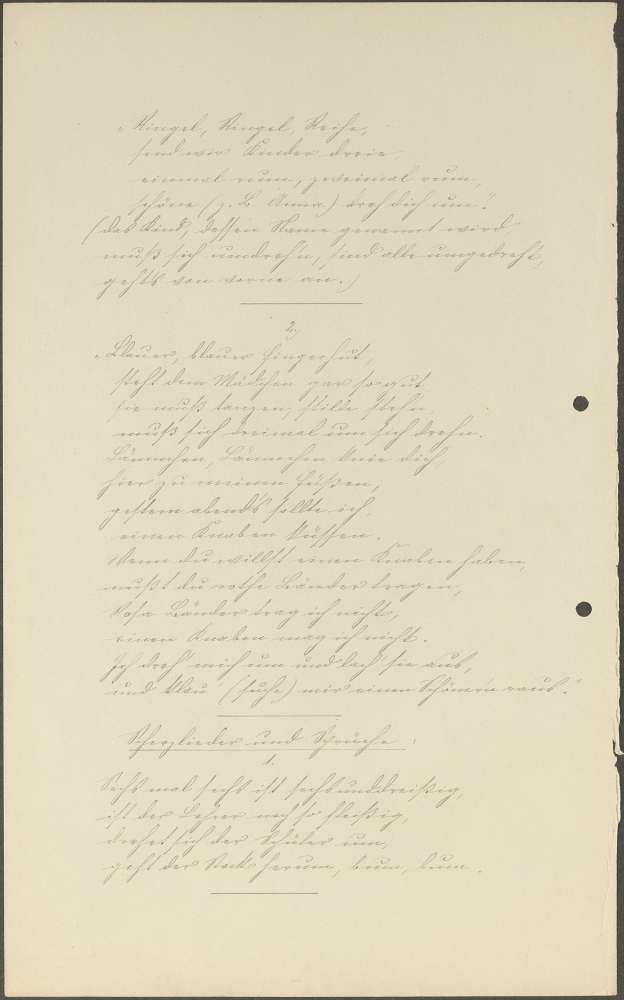 „Ringel, Ringel, Reihe,
sind wir Kinder dreie,
einmal rum, zweimal rum,
schöne (z. B. Anna) dreh dich um!"
(das Kind, dessen Name genannt wird,
muß sich umdreh'n, sind alle umgedreht,
geht's von vorne an.)
2.)
„Blauer, blauer Fingerhut,
steht dem Mädchen gar so gut
sie muß tanzen, stille stehn,
muß sich dreimal um sich drehn.
Lämmchen, Lämmchen knie dich,
hier zu meinen Füßen,
gestern abends sollte ich,
einen Knaben küssen.
Wenn du willst einen Knaben haben,
mußt du rothe Bänder tragen,
Rosa Bänder trag ich nicht,
einen Knaben mag ich nicht.
Ich dreh' mich um und lach' sie aus,
und klau' (suche) mir einen Schöner'n raus."
Scherzlieder und Sprüche:
1.
Sechs mal sechs ist sechsunddreißig,
ist der Lehrer noch so fleißig,
drehet sich der Schüler um,
geht der Stock herum, bum, bum.